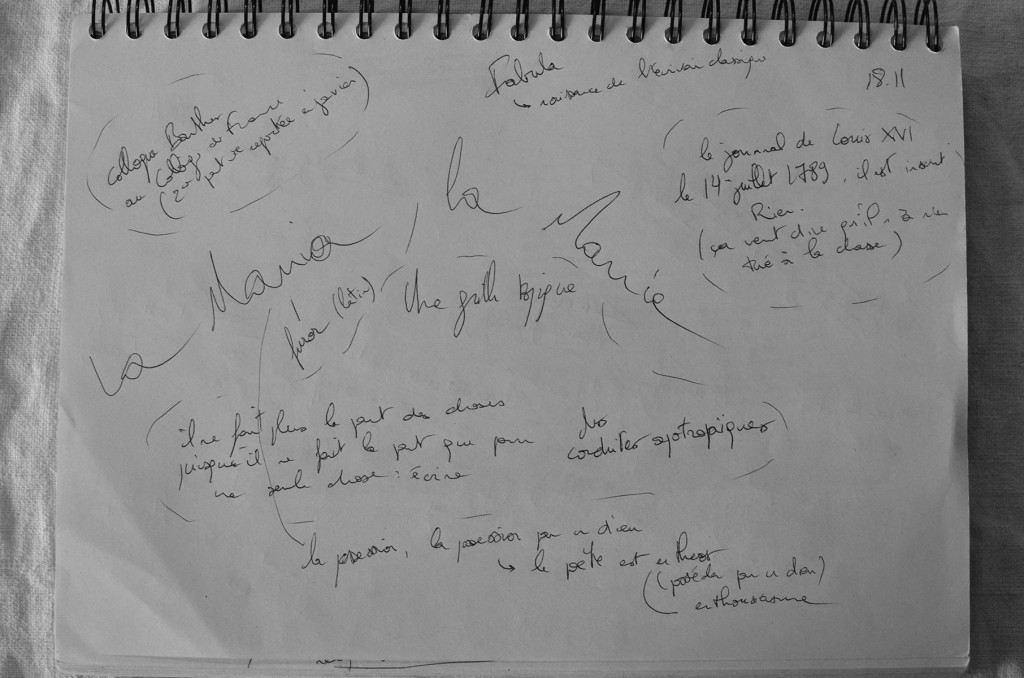 Fabula
↳ naissance de l'écrivain classique
18.11
(colloque Barthes
au Collège de France
peut-être reportée à janvier)
(le journal de Louis XVI
le 14 juillet 1789, il est inscrit
Rien.
(ça veut dire qu'il n'a rien
tué à la chasse)
La Mania, la Manie
furor (latin)
Une grille topique
il ne fait plus la part des choses
puisqu'il ne fait la part que pour
une seule chose : écrire
des
conduites
la possession, la possession par un dieu
↳ le poète est entheos
(possédé par un dieu)
enthousiasme